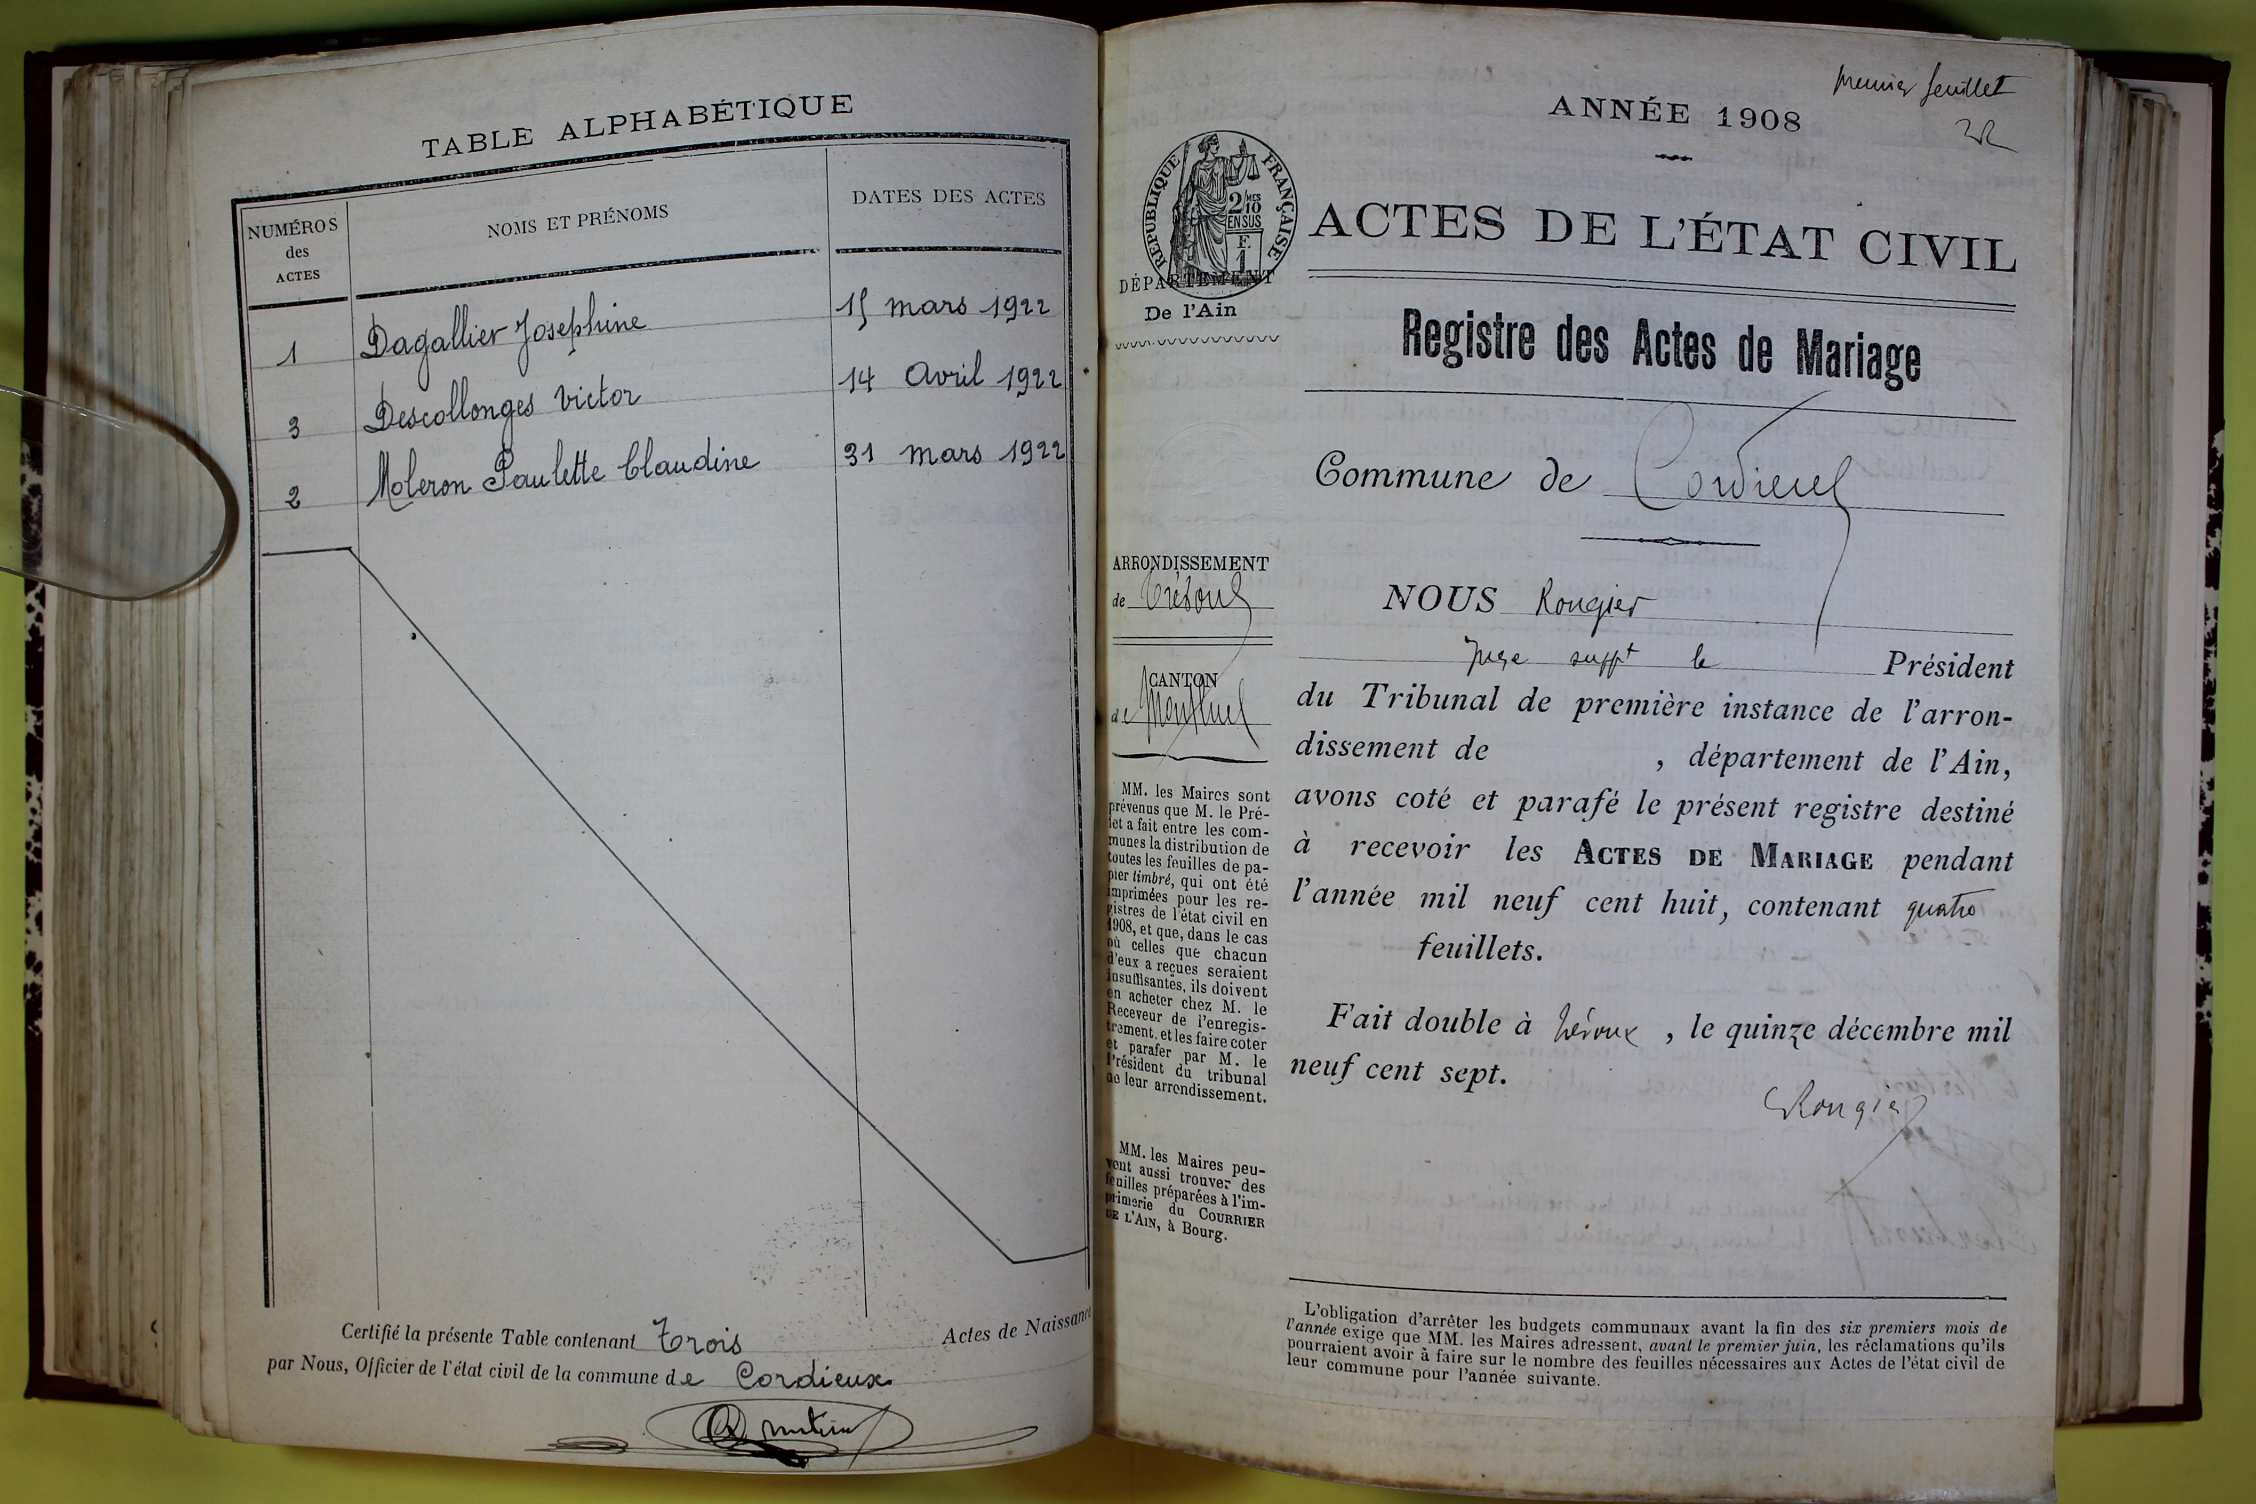 TABLE ALPHABÉTIQUE
NUMÉROS
des
ACTES
NOMS ET PRÉNOMS
DATES DES ACTES
1 Dagallier Josephine 15 mars 1922
3 Descollonges Victor 14 Avril 1922
2 Moleron Paulette Claudine 31 mars 1922
Certifié la présente Table contenant Trois Actes de Naissance
par Nous, Officier de l'état civil de la commune de Cordieux
premier feuillet
ANNÉE 1908
RÉPUBLIQUE FRANÇAISE
2/MES
10
EN SUS
F.
1
ACTES DE L'ÉTAT CIVIL
DÉPARTEMENT
De l'Ain
Registre des Actes de Mariage
Commune de Cordieux
ARRONDISSEMENT
de Trévoux
CANTON
de Montluel
NOUS Rougier
Juge suppt le Président
du Tribunal de première instance de l'arron-
dissement de , département de l'Ain,
avons coté et parafé le présent registre destiné
à recevoir les ACTES DE MARIAGE pendant
l'année mil neuf cent huit, contenant quatre
feuillets.
Fait double à Trévoux, le quinze décembre mil
neuf cent sept.
Rougier
MM. les Maires sont
prévenus que M. le Pré-
fet a fait entre les com-
munes la distribution de
toutes les feuilles de pa-
pier timbré, qui ont été
imprimées pour les re-
gistres de l'état civil en
1908, et que, dans le cas
où celles que chacun
d'eux a reçues seraient
insuffisantes, ils doivent
en acheter chez M. le
Receveur de l'enregis-
trement, et les faire coter
et parafer par M. le
Président du tribunal
de leur arrondissement.
MM. les Maires peu-
vent aussi trouver des
feuilles préparées à l'im-
primerie du COURRIER
DE L'AIN, à Bourg.
L'obligation d'arrêter les budgets communaux avant la fin des six premiers mois de
l'année exige que MM. les Maires adressent, avant le premier juin, les réclamations qu'ils
pourraient avoir à faire sur le nombre des feuilles nécessaires aux Actes de l'état civil de
leur commune pour l'année suivante.